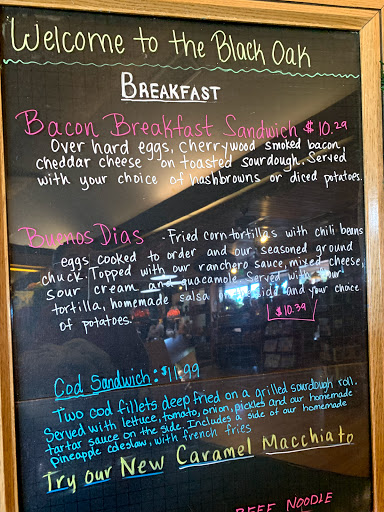 Welcome to the Black Oak
BREAKFAST
Bacon Breakfast Sandwich $10.29
Over hard eggs, cherrywood smoked bacon,
cheddar cheese on toasted sourdough. Served
with your choice of hashbrowns or diced potatoes.
Buenos Dias - Fried corn tortillas with chili beans
eggs cooked to order and our seasoned ground
chuck. Topped with our ranchero sauce, mixed cheese,
sour cream and guacamole. Served with flour
tortilla, homemade salsa on the side and your choice
of potatoes. $10.39
Cod Sandwich: $11.99
Two cod fillets deep fried on a grilled sourdough roll.
Served with lettuce, tomato, onion, pickles and our homemade
tartar sauce on the side. Includes a side of our homemade
pineapple coleslaw, with french fries
Try our New Caramel Macchiato
BEEF NOODLE